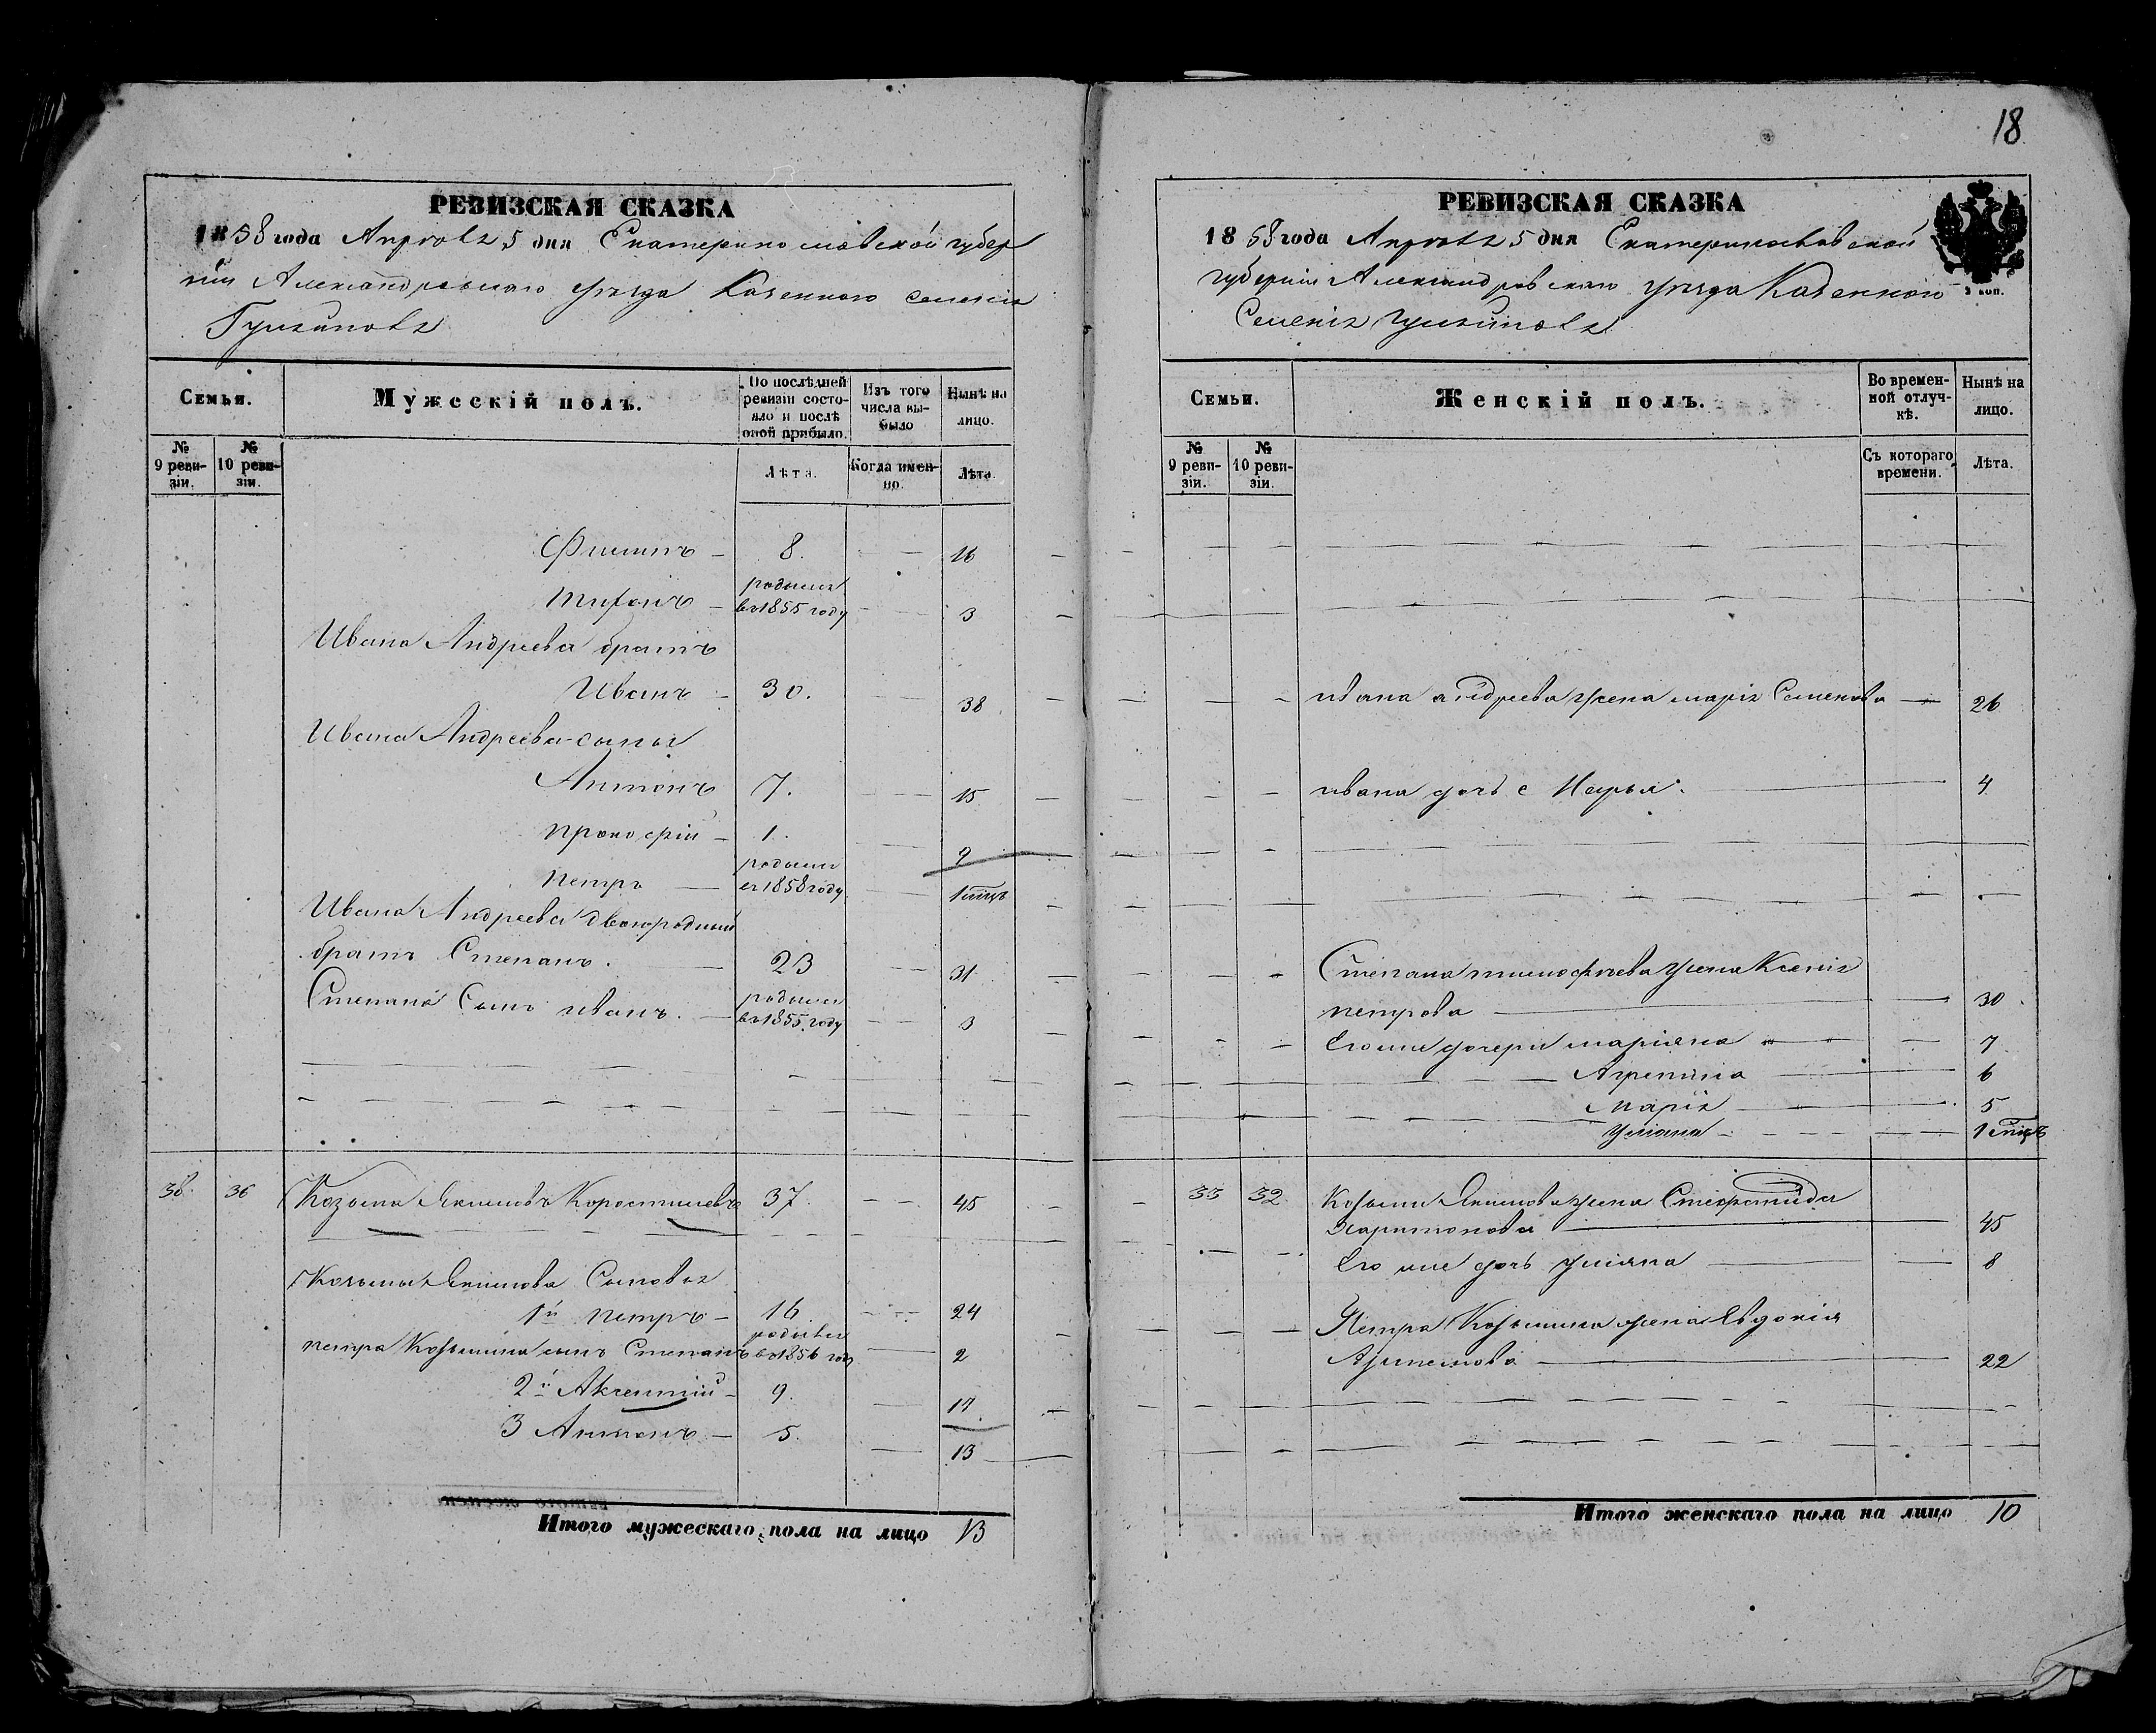 18
РЕВИЗСКАЯ СКАЗКА
1858 года Апреля 5 дня Екатеринославской губер
нии Александровскаго уезда Казеннаго селения
Семьи.
Мужескій полъ.
По послѣдней ревизіи состояло и послѣ оной прибыло.
Изъ того числа выбыло
Нынѣ на лицо.
№ 9 ревизіи.
№ 10 ревизіи.
Лѣта.
Когда именно.
Лѣта.
Филипъ 8. 16
Тихонъ родился в 1855 году 3
Ивана Андреева братъ
Иванъ 30. 38
Ивана Андреева сыны
Антонъ 7. 15
Прокофій 1. 9
Петръ родился в 1858 году 1 мцъ
Ивана Андреева двоюродный
братъ Степанъ. 23 31
Степана Сынъ иванъ. родился в 1855 году 3
38. 36 Козьма Якимовъ Коростилевъ 37. 45
Козьмы Якимова Сыновья
1й Петръ 16 24
петра Козьмина сынъ Степанъ родился в 1856 году 2
2й Аксентій 9. 17
3 Антонъ 5. 13
Итого мужескаго пола на лицо 13
РЕВИЗСКАЯ СКАЗКА
1858 года Апреля 5 дня Екатеринославской
губернии Александровскаго уезда Казеннаго
Селения
2 коп.
Семьи.
Женскій полъ.
Во временной отлучкѣ.
Нынѣ на лицо.
№ 9 ревизіи.
№ 10 ревизіи.
Съ котораго времени.
Лѣта.
ивана андреева жена марія Семенова 26
ивана дочь 4
Степана тимофѣева жена Ксенія
петрова 30
Его же дочери маріяна 7
Агрепина 6
Марія 5
Уліана 1 мцъ
33 32. Козьмы Якимова жена
Харитонова 45
Его же дочь уліяна 8
Петра Козьмина жена Евдокія
22
Итого женскаго пола на лицо 10